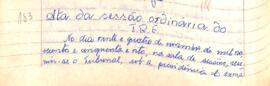 183 Ata da sessão ordinária do
T.R.E.
Ao dia vinte e quatro de novembro de mil nove
centos e cinquenta e oito, na sala de sessões, reu
niu-se o Tribunal, sob a presidência do